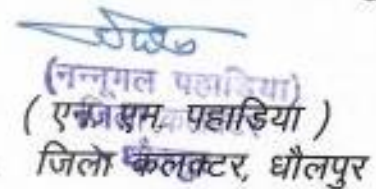 (नन्नूमल पहाड़िया)
( एन. एम. पहाड़िया )
जिला कलक्टर, धौलपुर